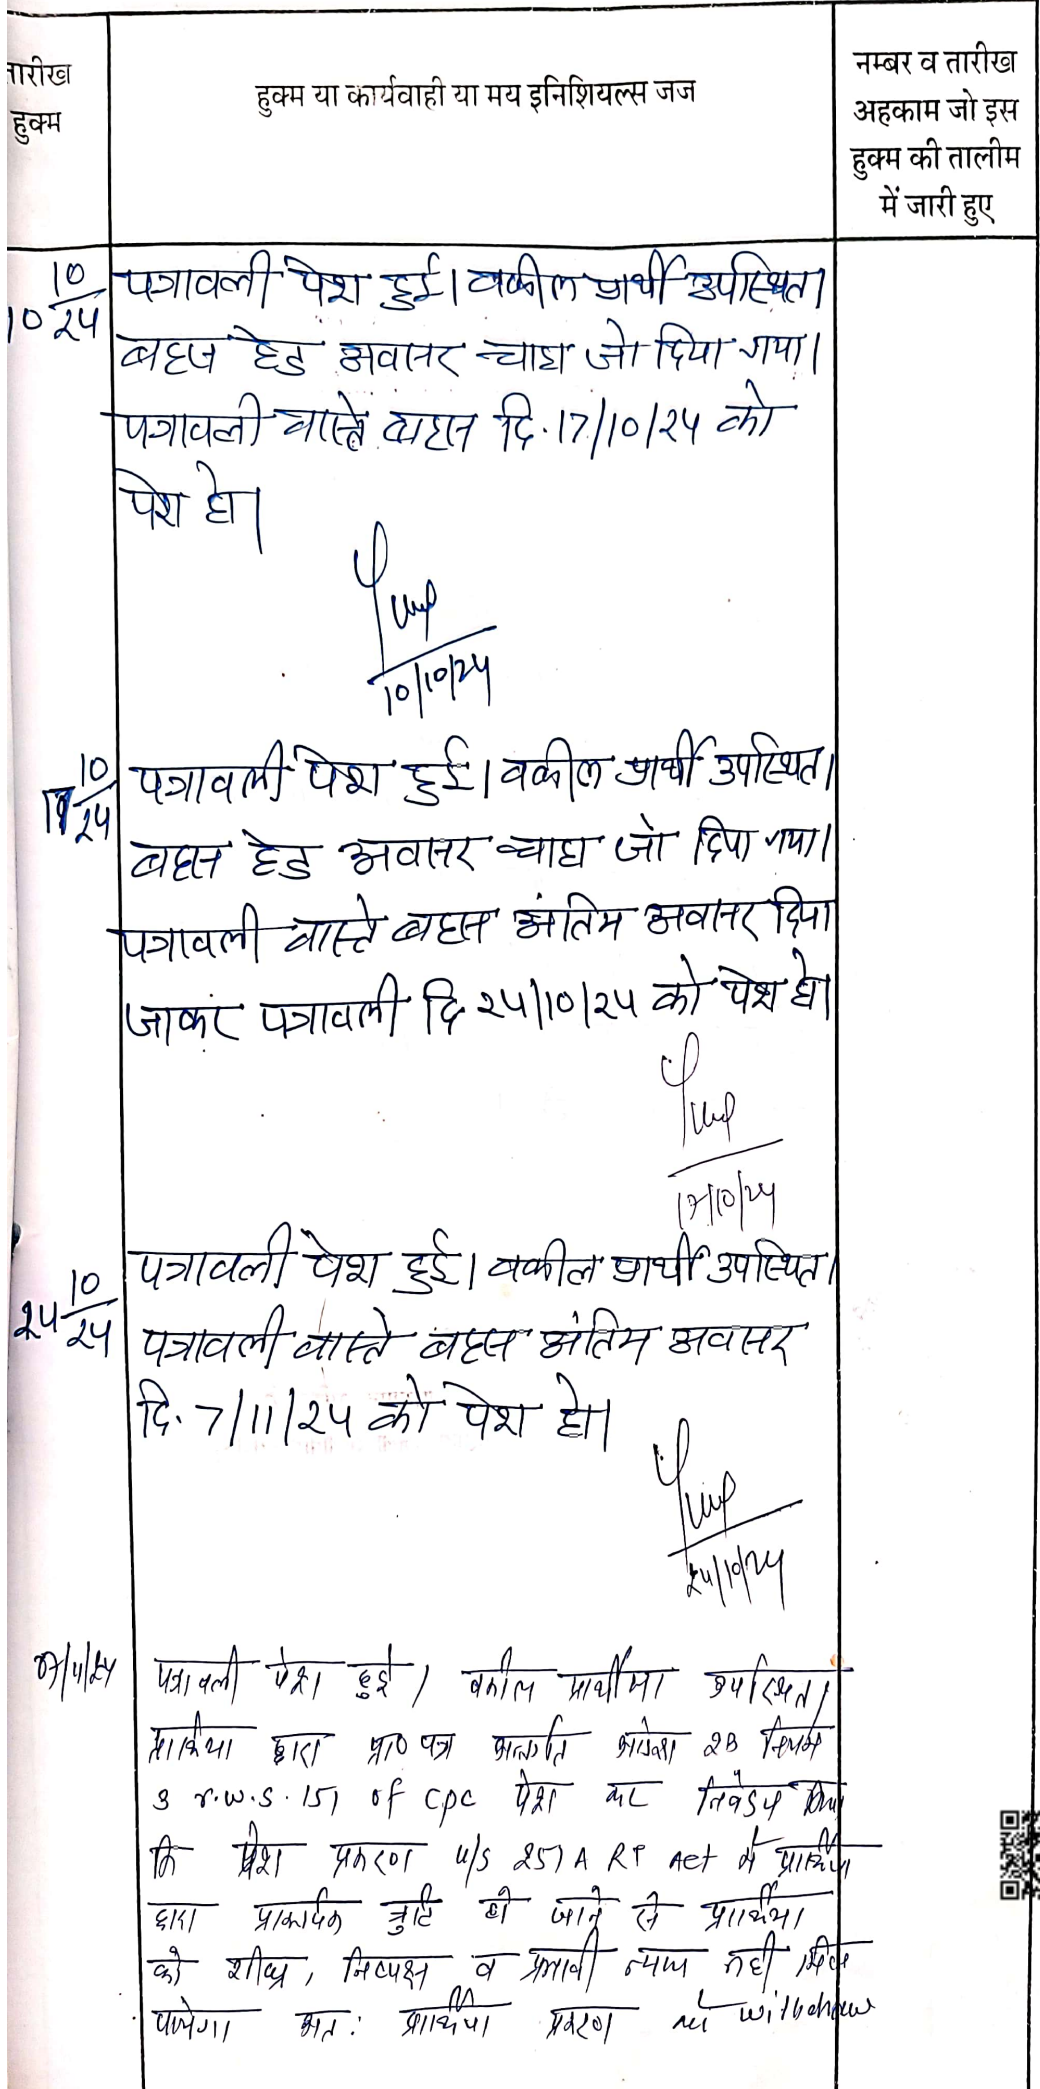 तारीख
हुक्म
हुक्म या कार्यवाही या मय इनिशियल्स जज
नम्बर व तारीख
अहकाम जो इस
हुक्म की तालीम
में जारी हुए
10 10/24 पत्रावली पेश हुई। वकील प्रार्थी उपस्थित।
बहस हेतु अवसर चाहा जो दिया गया।
पत्रावली वास्ते बहस दि. 17/10/24 को
पेश हो।
10/10/24
17 10/24 पत्रावली पेश हुई। वकील प्रार्थी उपस्थित।
बहस हेतु अवसर चाहा जो दिया गया।
पत्रावली वास्ते बहस अंतिम अवसर दिया
जाकर पत्रावली दि 24/10/24 को पेश हो।
17/10/24
24 10/24 पत्रावली पेश हुई। वकील प्रार्थी उपस्थित।
पत्रावली वास्ते बहस अंतिम अवसर
दि. 7/11/24 को पेश हो।
24/10/24
07/11/24 पत्रावली पेश हुई। वकील प्रार्थीया उपस्थित।
प्रार्थिया द्वारा प्रा० पत्र अन्तर्गत आदेश 23 नियम
3 r.w.s. 151 of cpc पेश कर निवेदन किया
कि पेश प्रकरण u/s 251 A RT Act में प्रार्थिया
द्वारा प्राकृतिक त्रुटि हो जाने से प्रार्थिया
को शीघ्र, निष्पक्ष व प्रभावी न्याय नही मिल
पायेगा अत: प्रार्थिया प्रकरण को withdraw